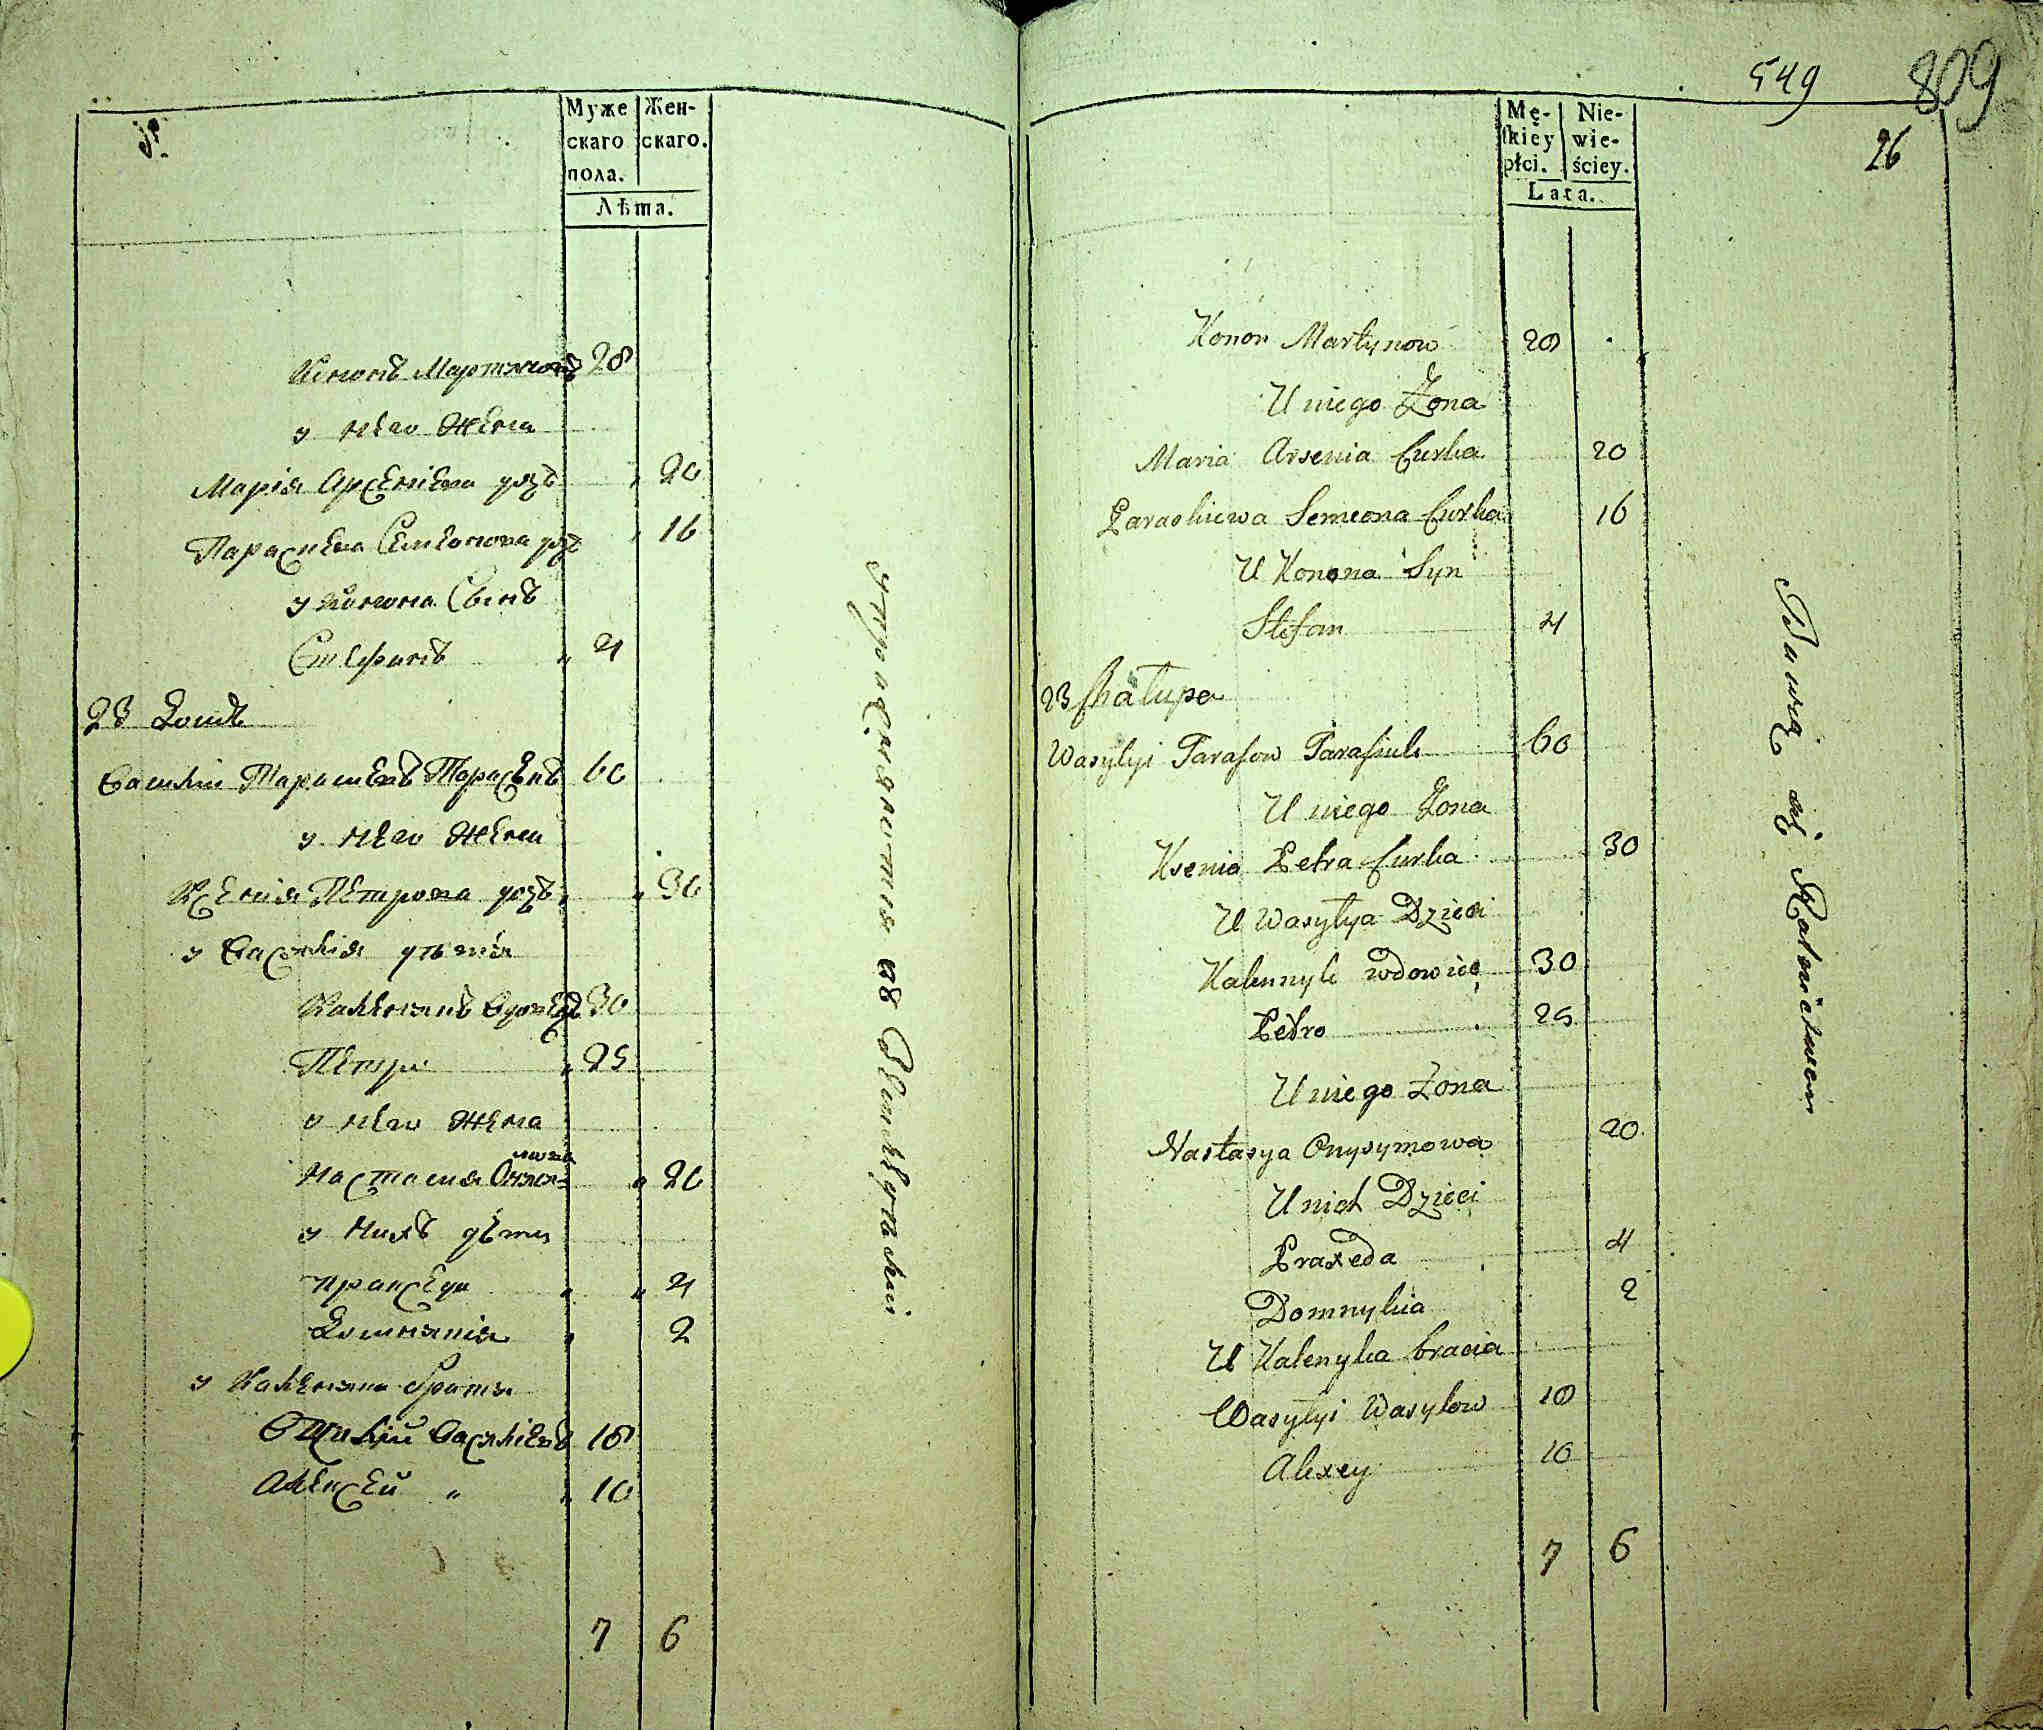 Муже
скаго
пола.
Жен-
скаго.
Лѣта.
Кононъ Мартиновъ 28
у Него Жена
Марія Арсеніева дочь 20
Параскева Семионова дочь 16
у Конона Сынъ
Стефанъ 4
23 Домъ
Василій Тарасіевъ Тарасюкъ 60
у Него Жена
Ксенія Петрова дочь 30
у Василія дѣти
Каленикъ Вдовецъ 30
Петро 25
у Него Жена
Настасия Ониси=
мова 20
у Нихъ дѣти
Пракседа 4
Домникія 2
у Каленика братя
Василій Василіевъ 18
Алексей 10
7 6
549 809
26
Mę-
skiéy
płci.
Nie-
wie-
ściey.
Lata.
Konon Martynow 28
U niego Żona
Maria Arsenia Curka 20
Paraskiewa Semeona Curka 16
U Konona Syn
Stefan 4
23 Chałupa
Wasylyi Tarasow Tarasiuk 60
U niego Żona
Ksenia Petra Curka 30
U Wasylya Dzieci
Kalennyk wdowiec 30
Petro 25
U niego Żona
Nastasya Onysymowa 20
U nich Dzieci
Praxeda 4
Domnykia 2
U Kalenyka bracia
Wasylyi Wasylow 18
Alexey 10
7 6
Bawią się Rolnictwem